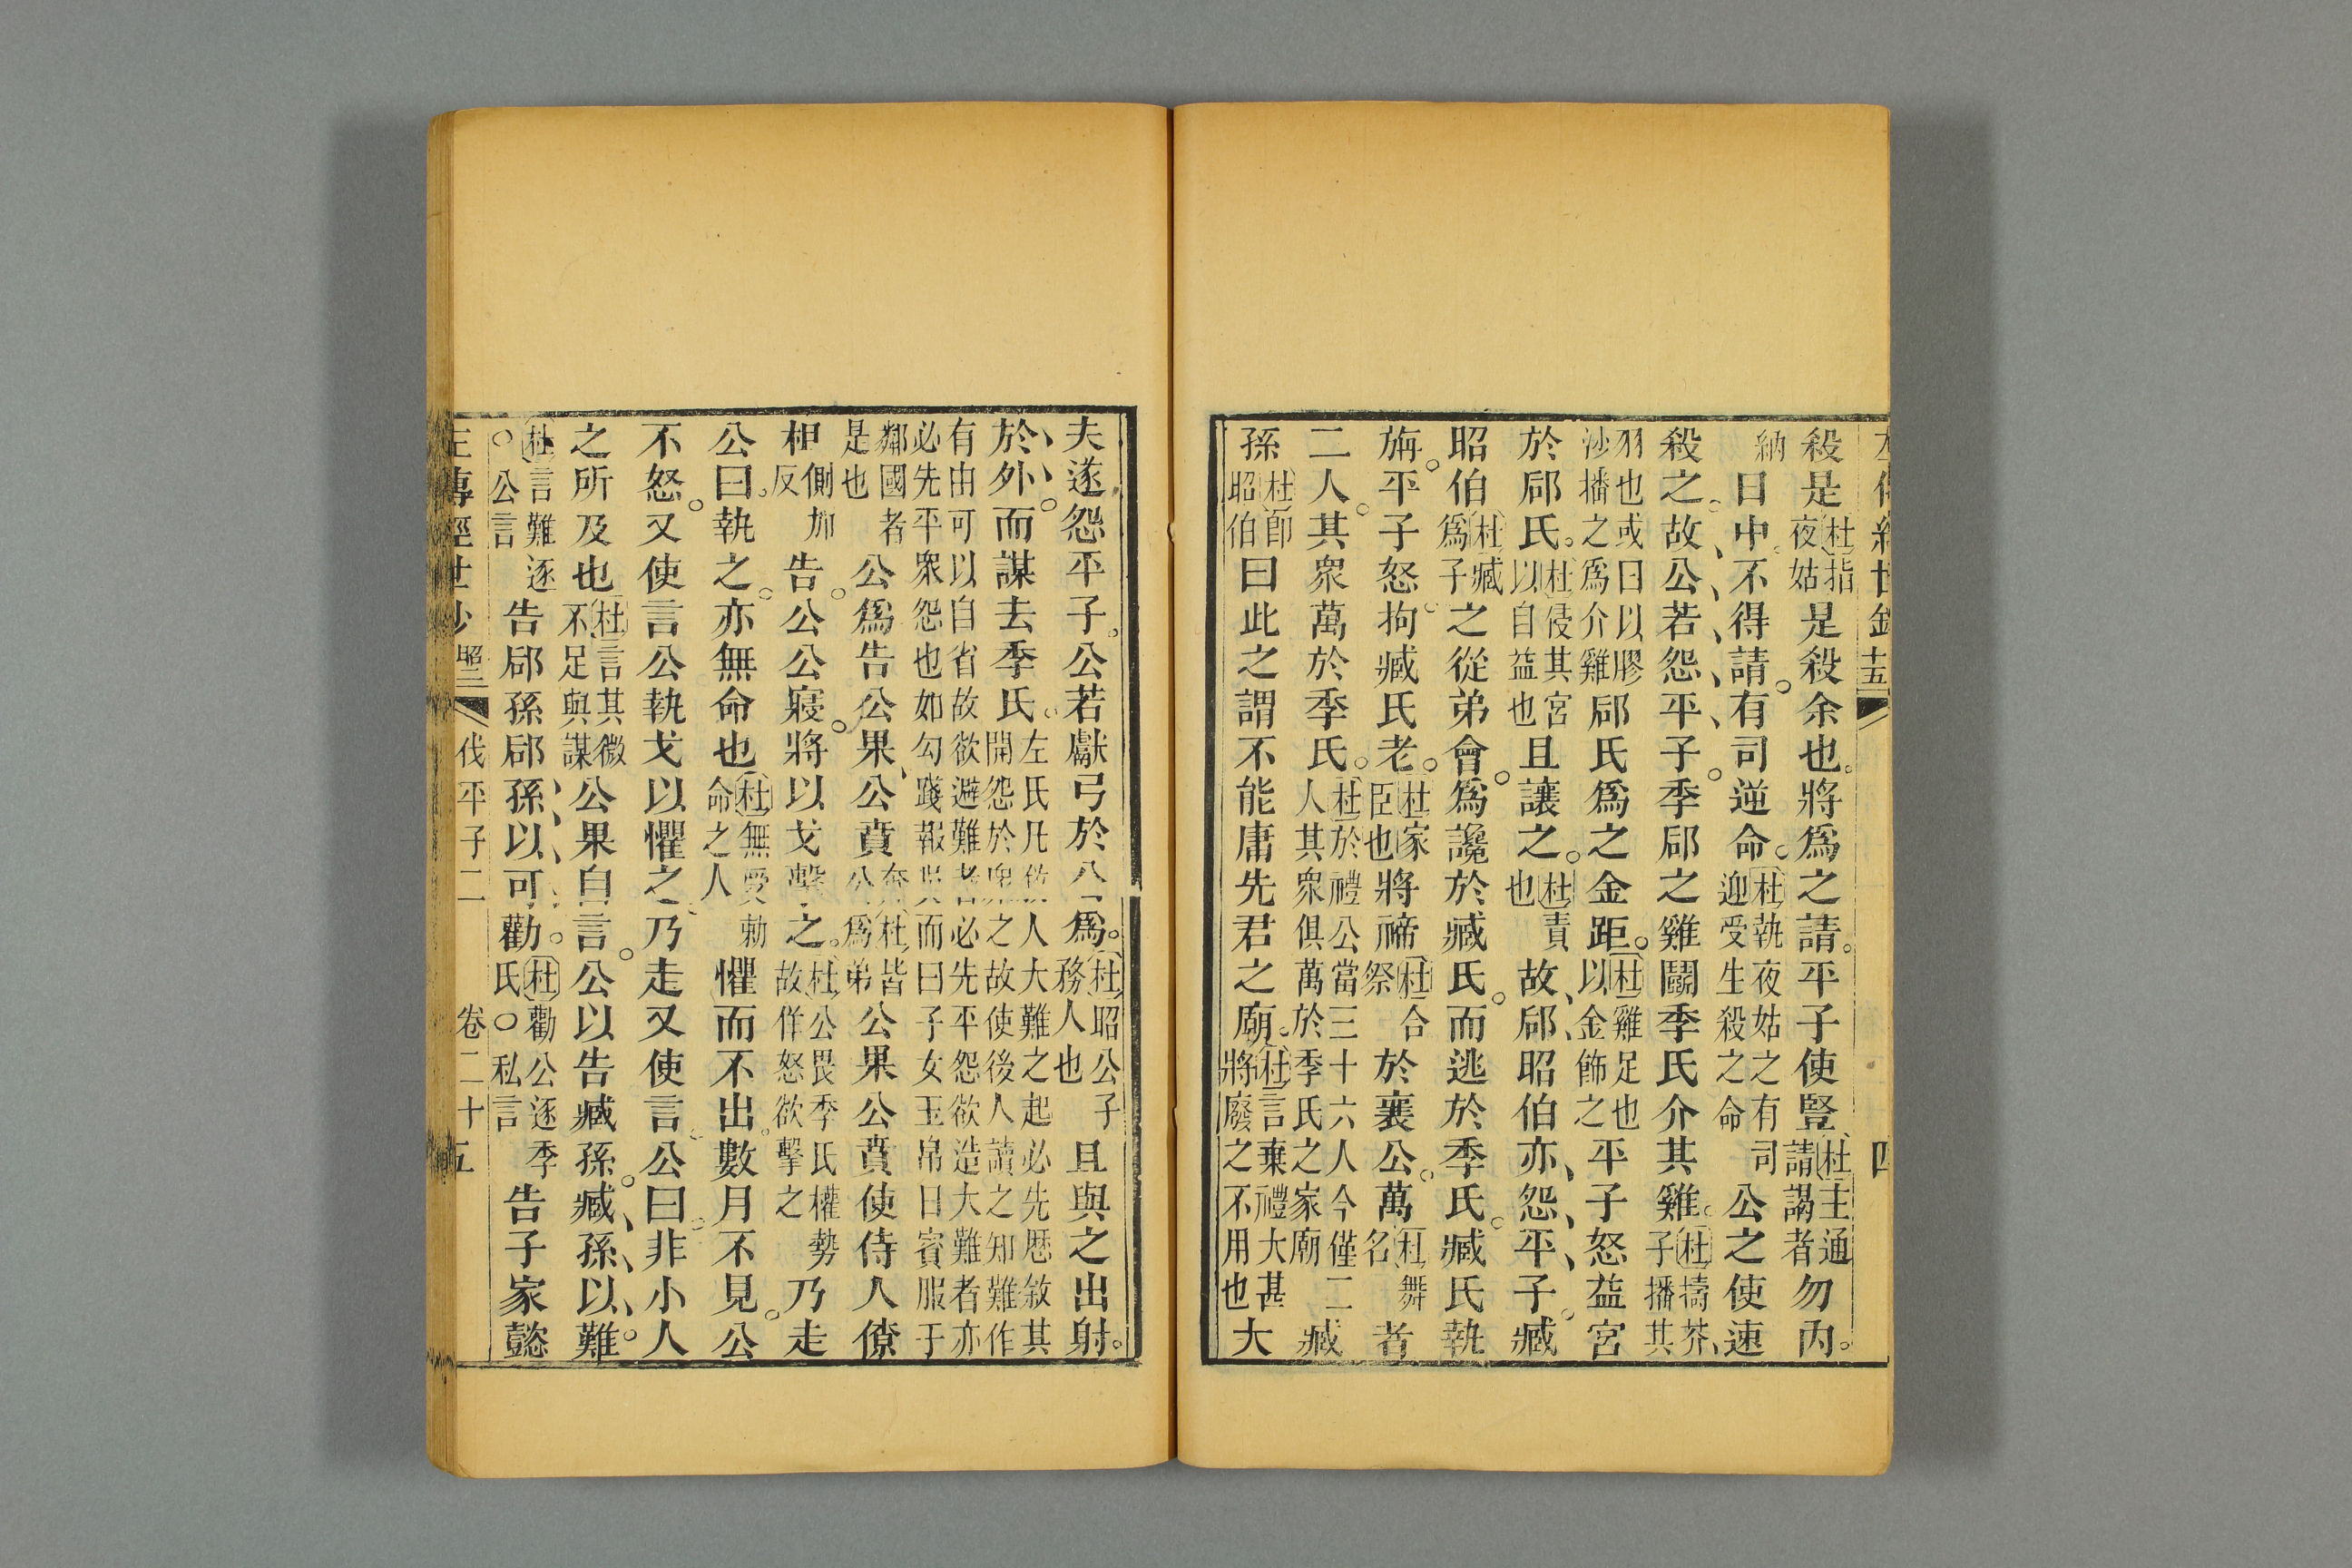 殺是杜指夜姑是殺余也將爲之請平子使豎杜主通請謁者勿內
納日中不得請有司逆命杜執夜姑之有司迎受生殺之命公之使速
殺之故公若怨平子季郈之雞鬭季氏介其雞杜擣芥子播其
羽也或曰以膠沙播之爲介雞郈氏爲之金距杜雞足也以金飾之平子怒益宮
於郈氏杜侵其宮以自益也且讓之杜責也故郈昭伯亦怨平子臧
昭伯杜臧爲子之從弟會爲讒於臧氏而逃於季氏臧氏執
旃平子怒拘臧氏老杜家臣也將禘杜合祭於襄公萬杜舞名者
二人其衆萬於季氏杜於禮公當三十六人今僅二人其衆俱萬於季氏之家廟臧
孫杜卽昭伯曰此之謂不能庸先君之廟杜言棄禮大甚將廢之不用也大
夫遂怨平子公若獻弓於公爲杜昭公子務人也且與之出射
於外而謀去季氏左氏凡敘人大難之起必先歷敘其開怨於衆之故使後人讀之知難作
有由可以自省故欲避難者必先平怨欲造大難者亦必先平衆怨也如勾踐報吳而曰子女玉帛日賓服于
鄰國者是也公爲告公果公賁奔杜皆公爲弟公果公賁使侍人僚
柤側加反告公公寢將以戈擊之杜公畏季氏權勢故佯怒欲擊之乃走
公曰執之亦無命也杜無受勅命之人懼而不出數月不見公
不怒又使言公執戈以懼之乃走又使言公曰非小人
之所及也杜言其微不足與謀公果自言公以告臧孫臧孫以難
杜言難逐〇公言告郈孫郈孫以可勸杜勸公逐季氏〇私言告子家懿
左傳經世鈔 昭三 伐平子二 卷二十五